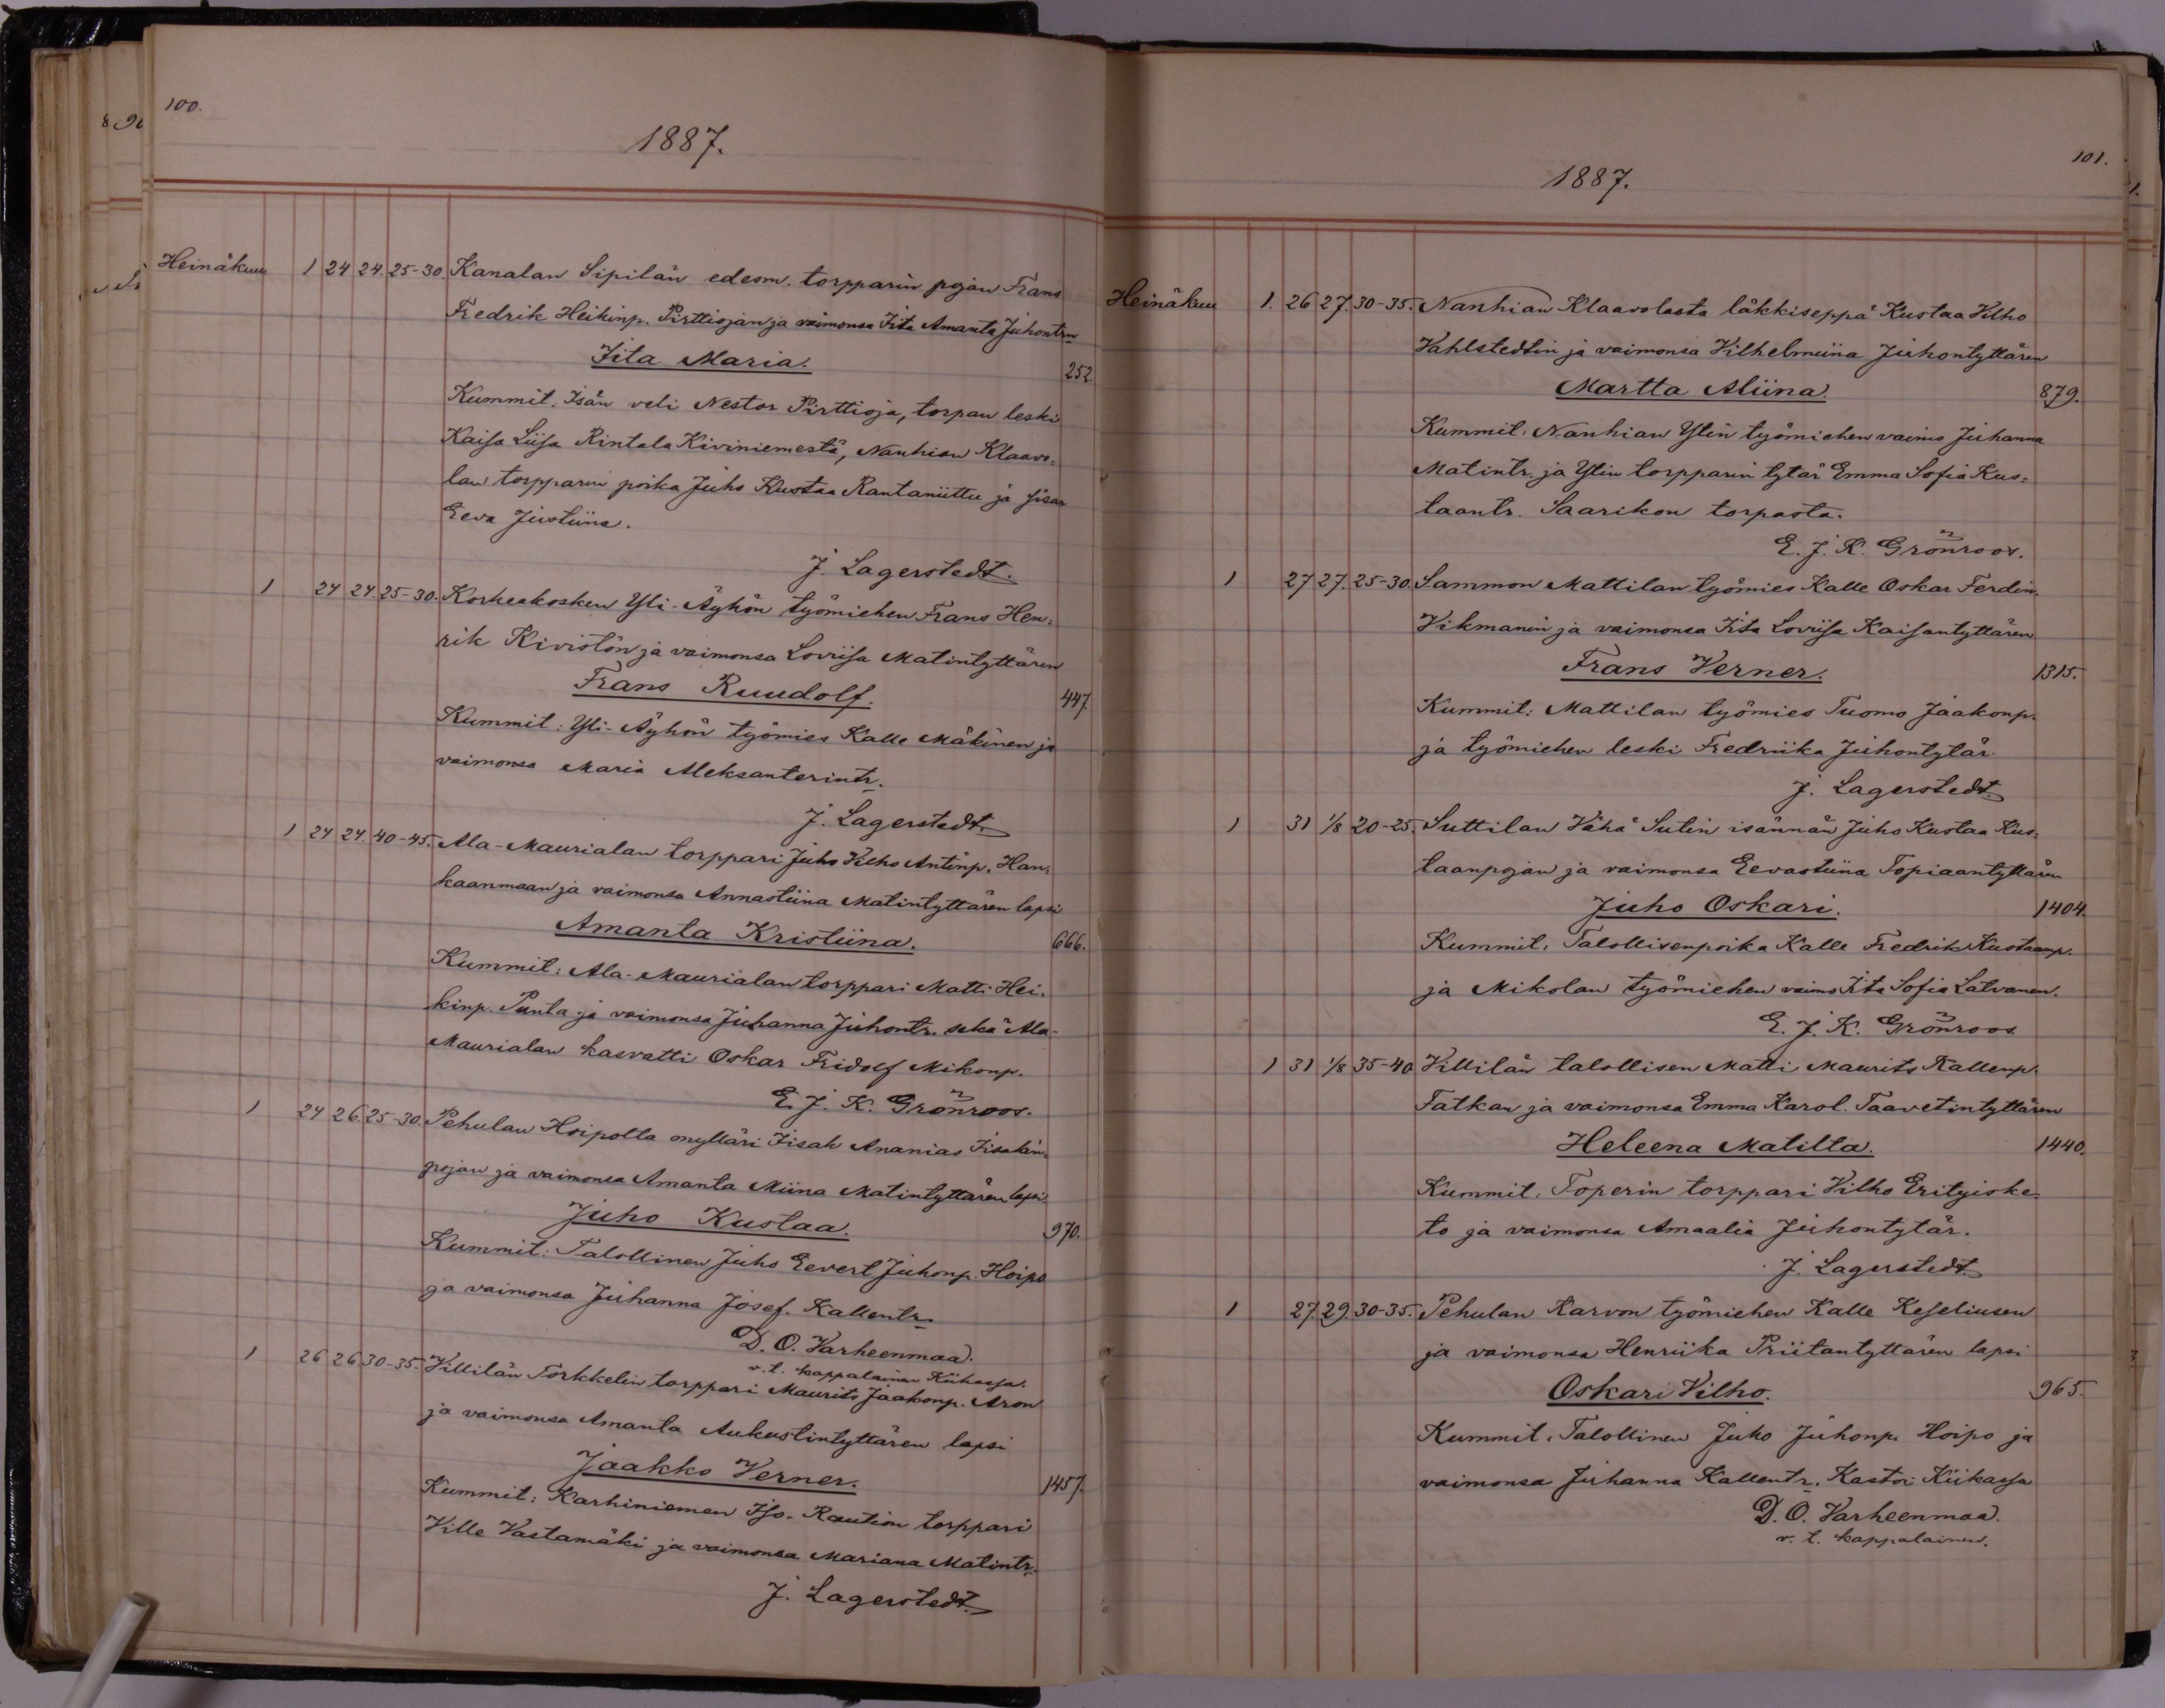 100.
1887.
Heinäkuu 1 24 24. 25-30. Kanalan Sipilän edesm. torpparin pojan Frans
Fredrik Heikinp. Pirttiojan ja vaimonsa Iita Amanta Juhontrn
Iita Maria. 252.
Kummit. Isän veli Nestor Pirttioja, torpan leski
Kaisa Liisa Rintala Kiviniemestä, Nanhian Klaavo-
lan torpparin poika Juho Kustaa Rantaniittu ja sisar
Eeva Justiina.
J. Lagerstedt.
1 24 24 25-30. Korkeakosken Yli-Äyhön työmiehen Frans Hen-
rik Kivistön ja vaimonsa Loviisa Matintyttären
Frans Ruudolf. 447.
Kummit: Yli-Äyhön työmies Kalle Mäkinen ja
vaimonsa Maria Aleksanterintr.
J. Lagerstedt.
1 24 24 40-45. Ala-Maurialan torppari Juho Vilho Antinp. Han-
kaanmaan ja vaimonsa Annastiina Matintyttären lapsi
Amanta Kristiina. 666.
Kummit: Ala-Maurialan torppari Matti Hei-
kinp. Panta ja vaimonsa Juhanna Juhontr. sekä Ala-
Maurialan kasvatti Oskar Fridolf Mikonp.
E. J. K. Grönroos.
1 24 26 25-30. Pehulan Hoipolta mylläri Iisak Ananias Iisakin-
pojan ja vaimonsa Amanta Miina Matintyttären lapsi
Juho Kustaa. 970.
Kummit: Talollinen Juho Eevert Juhonp. Hoipo
ja vaimonsa Juhanna Josef. Kallentr.
D. O. Varheenmaa.
v. t. kappalainen Kiikassa.
1 26 26 30-35. Villilän Torkkelin torppari Maurits Jaakonp. Aron
ja vaimonsa Amanta Aukustintyttären lapsi
Jaakko Verner. 1457.
Kummit: Karhiniemen Iso-Raution torppari
Ville Vastamäki ja vaimonsa Mariana Matintr.
J. Lagerstedt.
101.
1887.
Heinäkuu 1. 26 27. 30-35. Nanhian Klaavolasta läkkiseppä Kustaa Vilho
Vahlstedtin ja vaimonsa Vilhelmiina Juhontyttären
Martta Aliina. 879.
Kummit: Nanhian Ylin työmiehen vaimo Juhanna
Matintr. ja Ylin torpparin tytär Emma Sofia Kus-
taantr. Saarikon torpasta.
E. J. K. Grönroos.
1 27 27. 25-30. Sammon Mattilan työmies Kalle Oskar Ferdin.
Vikmanin ja vaimonsa Iita Loviisa Kaisantyttären
Frans Verner. 1315.
Kummit: Mattilan työmies Tuomo Jaakonp.
ja työmiehen leski Fredriika Juhontytär
J. Lagerstedt.
1 31 1/8 20-25. Suttilan Vähä Sutin isännän Juho Kustaa Kus-
taanpojan ja vaimonsa Eevastiina Topiaantyttären
Juho Oskari. 1404.
Kummit: Talollisenpoika Kalle Fredrik Kustaanp.
ja Mikolan työmiehen vaimo Iita Sofia Latvanen.
E. J. K. Grönroos.
1 31 1/8 35-40 Villilän talollisen Matti Maurits Kallenp.
Fatkan ja vaimonsa Emma Karol. Taavetintyttären
Heleena Matilta. 1440.
Kummit. Toperin torppari Vilho Erityiske-
to ja vaimonsa Amaalia Juhontytär.
J. Lagerstedt.
1 27. 29. 30-35. Pehulan Karvon työmiehen Kalle Keseliusen
ja vaimonsa Henriika Priitantyttären lapsi
Oskari Vilho. 965.
Kummit. Talollinen Juho Juhonp. Hoipo ja
vaimonsa Juhanna Kallentr. Kastoi Kiikassa
D. O. Varheenmaa.
v. t. kappalainen.